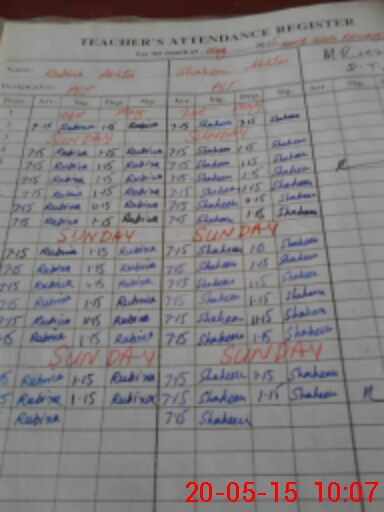 TEACHER'S ATTENDANCE REGISTER
For the month of May
Name: Rubina Akhtar Shaheen Akhtar
Designation PST PST
Date Arr. Sig. Dep. Sig. Arr. Sig. Dep. Sig. Arr. Sig.
1 May May
7-15 Rubina 1-15 Rubina 7-15 Shaheen 1-15 Shaheen
SUNDAY SUNDAY
7-15 Rubina 1-15 Rubina 7-15 Shaheen 1-15 Shaheen
7-15 Rubina 1-15 Rubina 7-15 Shaheen 1-15 Shaheen
7-15 Rubina 1-15 Rubina 7-15 Shaheen 1-15 Shaheen
7-15 Rubina 1-15 Rubina 7-15 Shaheen 1-15 Shaheen
7-15 Rubina Rubina 7-15 Shaheen Shaheen
7-15 Rubina 1-15 Rubina 7-15 Shaheen 1-15 Shaheen
SUNDAY SUNDAY
7-15 Rubina 1-15 Rubina 7-15 Shaheen Shaheen
7-15 Rubina 1-15 Rubina 7-15 Shaheen 1-15 Shaheen
7-15 Rubina 1-15 Rubina 7-15 Shaheen 1-15 Shaheen
7-15 Rubina 1-15 Rubina 7-15 Shaheen 1-15 Shaheen
7-15 Rubina Rubina 7-15 Shaheen Shaheen
7-15 Rubina 1-15 Rubina 7-15 Shaheen 1-15 Shaheen
SUNDAY SUNDAY
Rubina 1-15 Rubina 7-15 Shaheen 1-15 Shaheen
Rubina 1-15 Rubina 7-15 Shaheen 1-15 Shaheen
Rubina 7-15 Shaheen
20-05-15 10:07